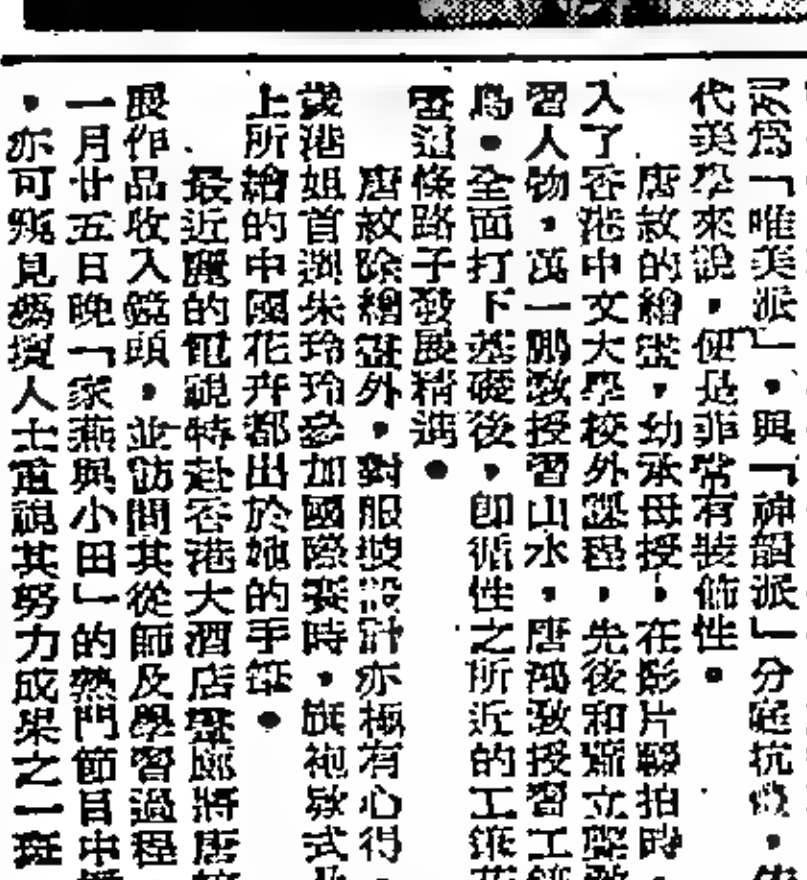 列為「唯美派」，與「神韻派」分庭抗
代美學來說，便是非常有裝飾性。
唐紋的繪畫，幼承母授，在影片輟拍時
入了香港中文大學校外課程，先後和蕭立聲教
習人物，萬一鵬教授習山水，唐鴻教授習工
鳥。全面打下基礎後，即循性之所近的工筆花
雷這條路子發展精進。
唐紋除繪畫外，對服裝設計亦極有心得，
歲港姐首選朱玲玲參加國際賽時，旗袍款式
上所繪的中國花卉都出於她的手筆。
最近麗的電視特赴香港大酒店畫廊將唐
展作品收入鏡頭，並訪問其從師及學習過程，
一月廿五日晚「家燕與小田」的熱門節目中
，亦可窺見藝壇人士重視其努力成果之一斑